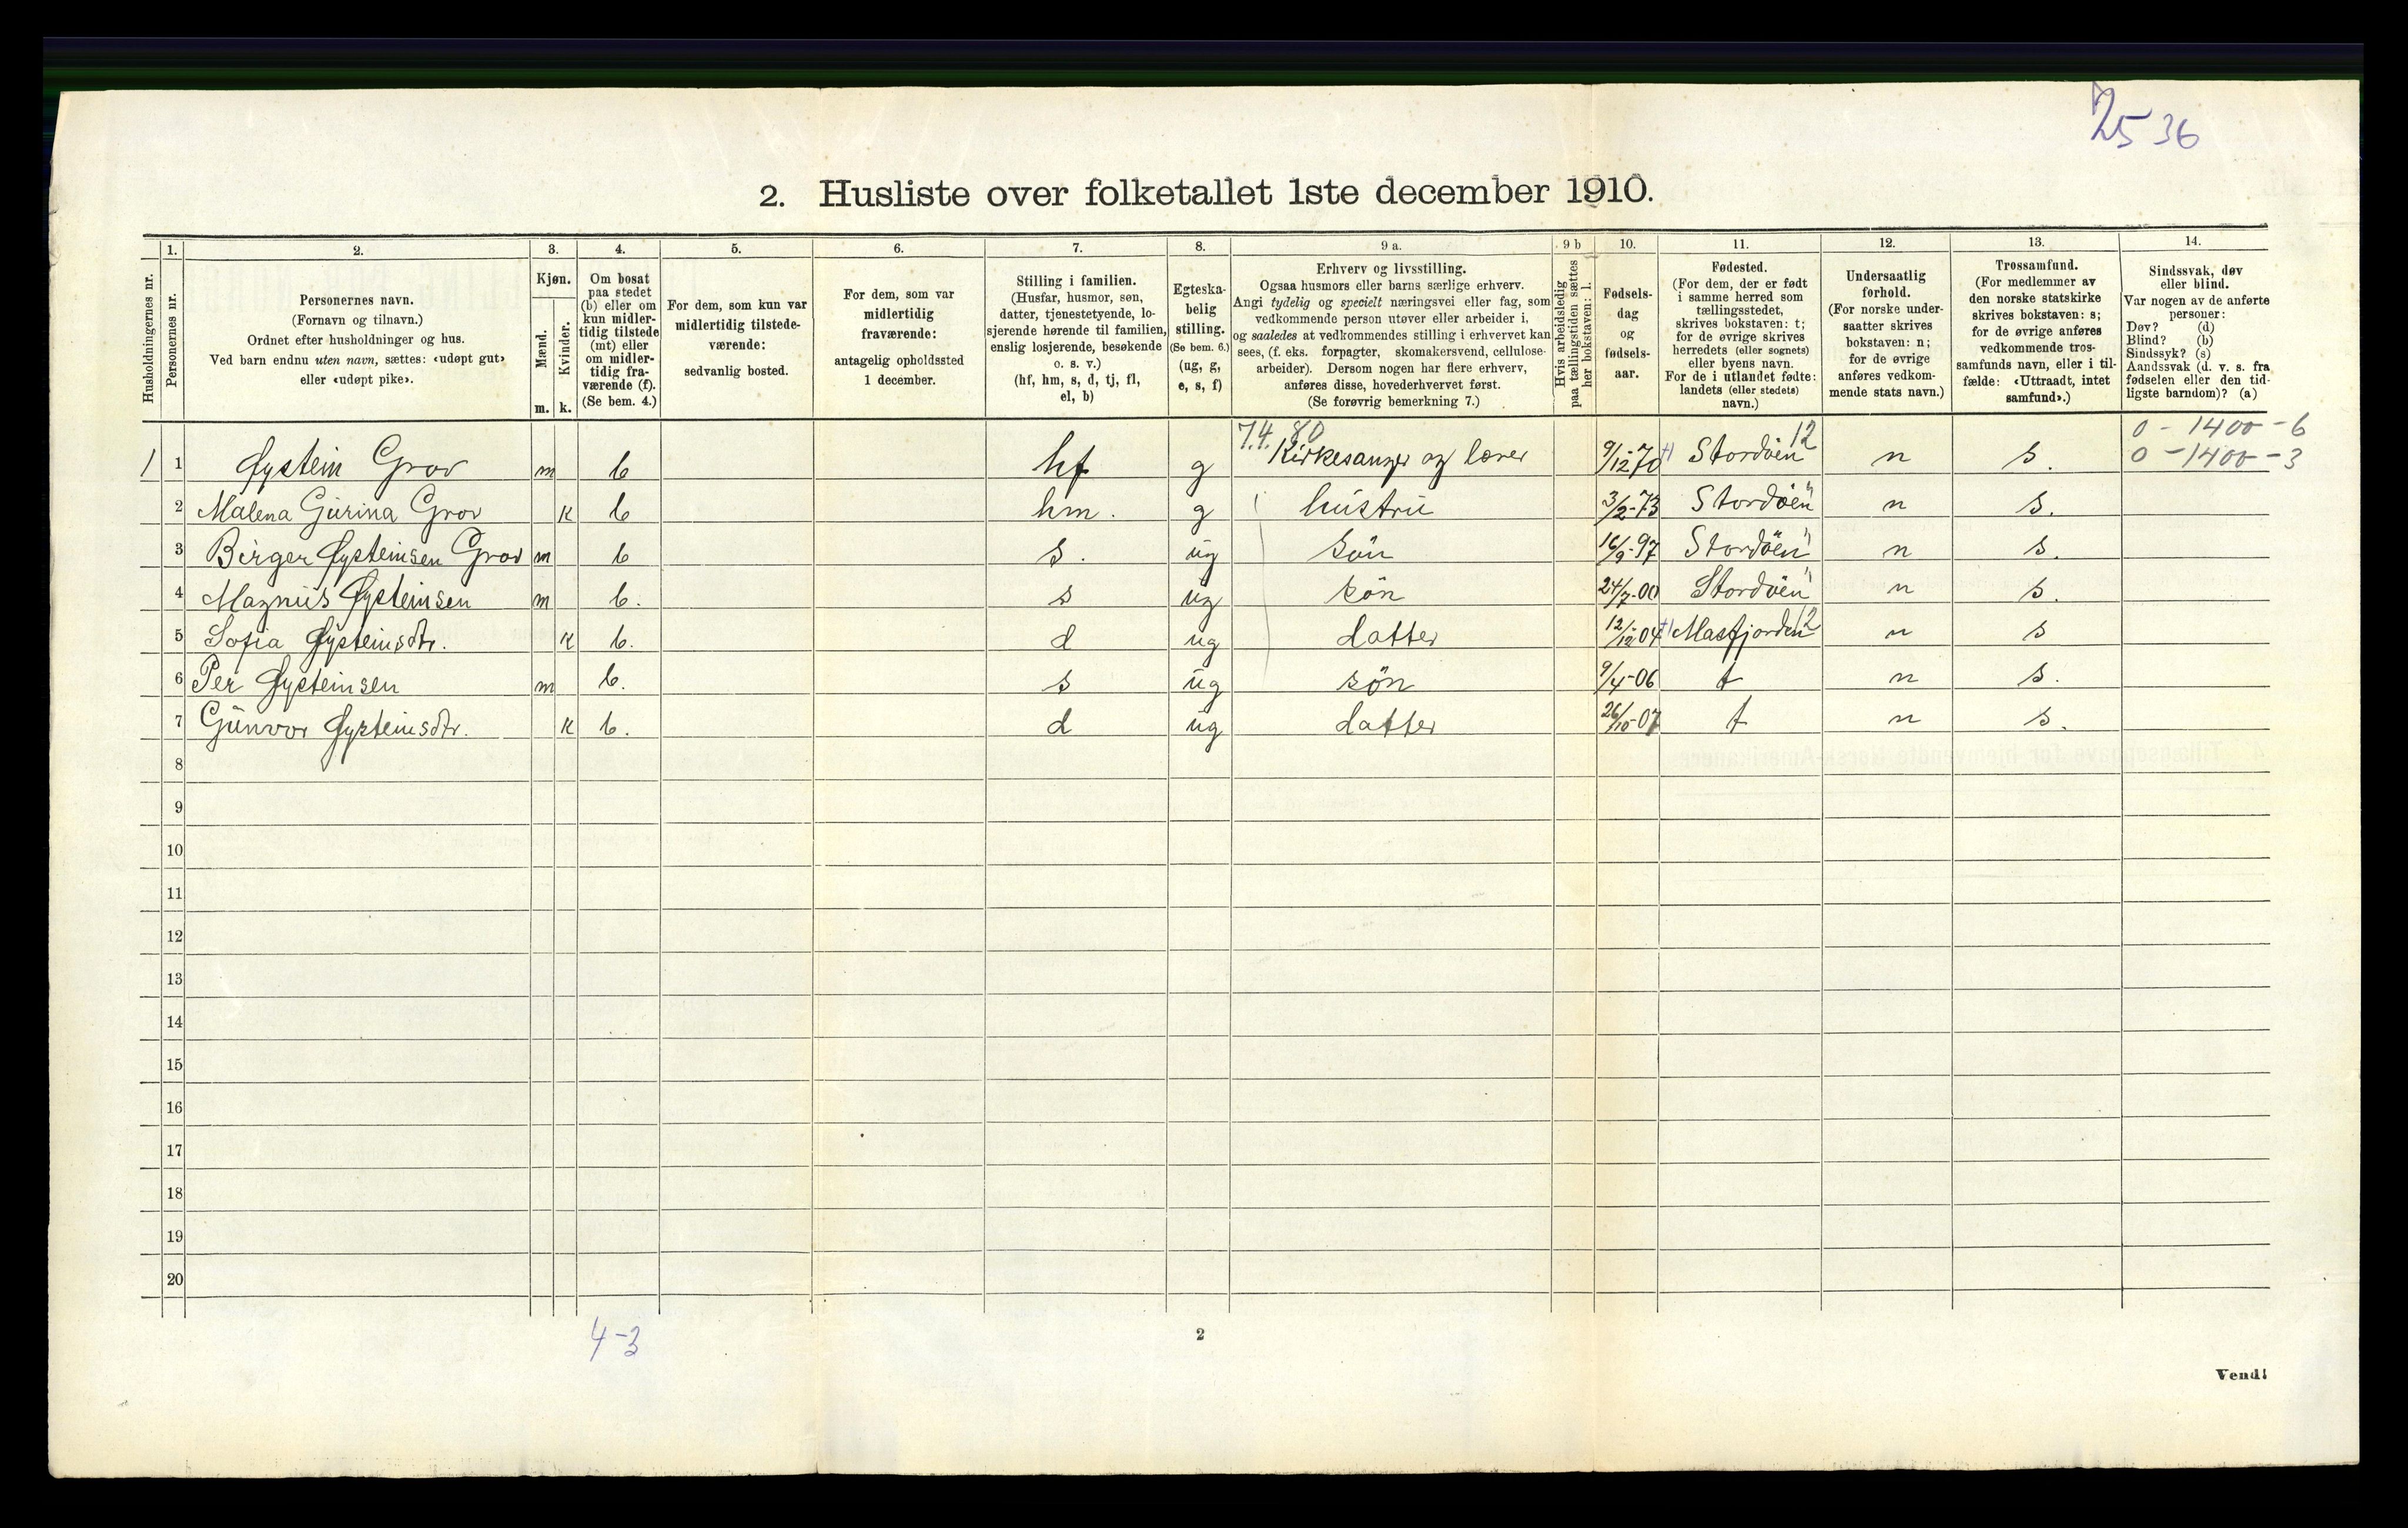 25 36
2. Husliste over folketallet 1ste december 1910.
Husholdningernes nr.
1. Personernes nr.
2. Personernes navn.
(Fornavn og tilnavn.)
Ordnet efter husholdninger og hus.
Ved barn endnu uten navn, sættes: «udøpt gut»
eller «udøpt pike».
3. Kjøn.
Mænd. m.
Kvinder. k.
4. Om bosat
paa stedet
(b) eller om
kun midler-
tidig tilstede
(mt) eller
om midler-
tidig fra-
værende (f).
(Se bem. 4.)
5. For dem, som kun var
midlertidig tilstede-
værende:
sedvanlig bosted.
6. For dem, som var
midlertidig
fraværende:
antagelig opholdssted
1 december.
7. Stilling i familien.
(Husfar, husmor, søn,
datter, tjenestetyende, lo-
sjerende hørende til familien,
enslig losjerende, besøkende
o. s. v.)
(hf, hm, s, d, tj, fl,
el, b)
8. Egteska-
belig
stilling.
(Se bem. 6.)
(ug, g,
e, s, f)
9 a. Erhverv og livsstilling.
Ogsaa husmors eller barns særlige erhverv.
Angi tydelig og specielt næringsvei eller fag, som
vedkommende person utøver eller arbeider i,
og saaledes at vedkommendes stilling i erhvervet kan
sees, (f. eks. forpagter, skomakersvend, cellulose-
arbeider). Dersom nogen har flere erhverv,
anføres disse, hovederhvervet først.
(Se forøvrig bemerkning 7.)
9 b Hvis arbeidsledig
paa tællingstiden sættes
her bokstaven: l.
10. Fødsels-
dag
og
fødsels-
aar.
11. Fødested.
(For dem, der er født
i samme herred som
tællingsstedet,
skrives bokstaven: t;
for de øvrige skrives
herredets (eller sognets)
eller byens navn.
For de i utlandet fødte:
landets (eller stedets)
navn.)
12. Undersaatlig
forhold.
(For norske under-
saatter skrives
bokstaven: n;
for de øvrige
anføres vedkom-
mende stats navn.)
13. Trossamfund.
(For medlemmer av
den norske statskirke
skrives bokstaven: s;
for de øvrige anføres
vedkommende tros-
samfunds navn, eller i til-
fælde: «Uttraadt, intet
samfund».)
14. Sindssvak, døv
eller blind.
Var nogen av de anførte
personer:
Døv? (d)
Blind? (b)
Sindssyk? (s)
Aandssvak (d. v. s. fra
fødselen eller den tid-
ligste barndom)? (a)
7.4. 80 12 0 - 1400 - 6
1 1 Øystein Grov m b hf g Kirkesanger og lærer 9/12-70 Stordöen n s. 0 - 1400 - 3
2 Malena Gurina Grov k b hm. g hustru 3/2-73 Stordöen " n s.
3 Birger Øysteinsen Grov m b s. ug sön 16/9-97 Stordöen " n s.
4 Magnus Øysteinsen m b. s ug sön 24/7-00 Stordöen " n s.
5 Sofia Øysteinsdtr. k b. d ug datter 12/12-04 Masfjorden 12 n s
6 Per Øysteinsen m b. s ug sön 9/4-06 t n s.
7 Gunvor Øysteinsdtr. k b. d ug datter 26/10-07 t n s.
8
9
10
11
12
13
14
15
16
17
18
19
20
4-3
2
Vend!